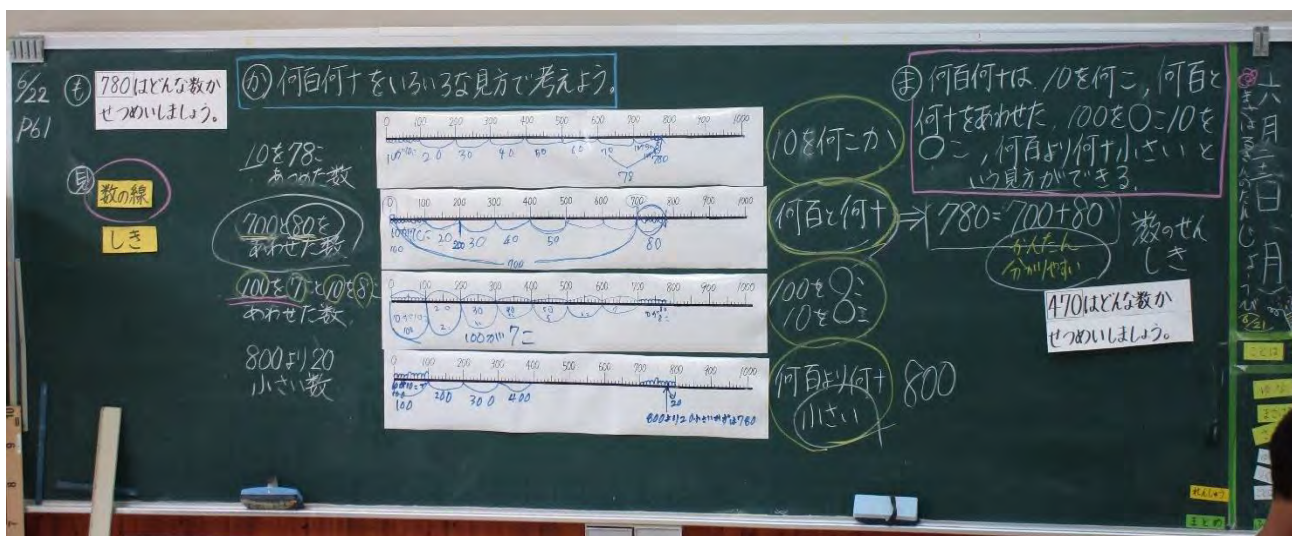 6/22
P61
も
780はどんな数か
せつめいしましょう。
見
数の線
しき
か 何百何十をいろいろな見方で考えよう。
10を78こ
あつめた数
700と80を
あわせた数
100を7こと10を8こ
あわせた数
800より20
小さい数
0 100 200 300 400 500 600 700 800 900 1000
20 30 40 50 60 70
780
78
0 100 200 300 400 500 600 700 800 900 1000
20 200 30 40 50 80
700
0 100 200 300 400 500 600 700 800 900 1000
100
100が7こ
0 100 200 300 400 500 600 700 800 900 1000
100 200 300 400
20
800より20小さいかずは780
10を何こか
何百と何十
100を〇こ
10を〇こ
何百より何十
小さい
800
ま 何百何十は、10を何こ、何百と
何十をあわせた、100を〇こ10を
〇こ、何百より何十小さいと
いう見方ができる。
⇒ 780=700+80
かんたん
分かりやすい
数のせん
しき
470はどんな数か
せつめいしましょう。
れんしゅう
まとめ
6/21
ことば